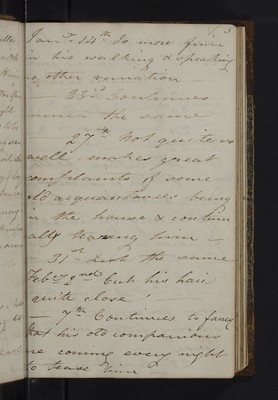 3
Jany 14th Is more firm
in his walking & speaking
no other variation —
23d Continues
much the same
27th Not quite so
well makes great
complaints of some
old acquaintances being
in the house & continu
ally teazing him —
31st Just the same
Feby 2nd Cut his hair
quite close!
— 7th Continues to fancy
that his old companions
are coming every night
to teaze him